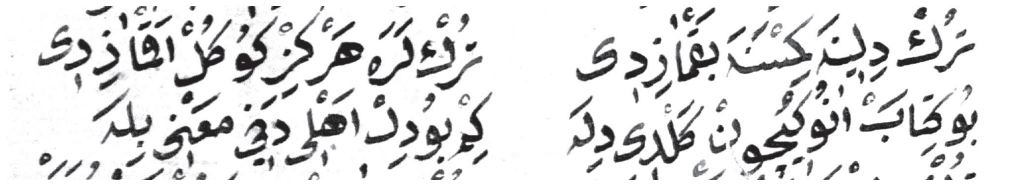 تُرْكْ دِلِينَه كِمْسَنَه بَقْمَازِدِى تُرْكْلَرَه هَرْكِزْ كُوكُلْ اَقْمَازِدِى
بُو كِتَابْ اَنُوكِيچُونْ كَلْدِى دِلَه كِمْ بُو دِلْ اَهْلِى دَخِى مَعْنِى بِلَه